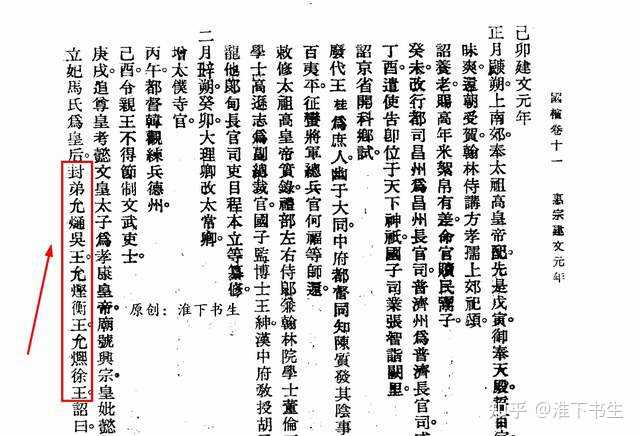 國榷卷十一 惠宗建文元年
己卯建文元年
正月 朔上南郊奉太祖高皇帝配先是戊寅御奉天殿誓百
昧爽還朝受賀翰林侍講方孝孺上郊祀頌。
詔養老賜高年米絮帛有差命官贖民鬻子。
癸未改行都司昌州爲昌州長官司普濟州爲普濟長官司
丁酉遣使告卽位于天下神祇國子司業張智詣闕里。
詔京省開科鄉試。
廢代王桂爲庶人幽于大同中府都督同知陳質發其陰事
百夷平征蠻將軍總兵官何福等師還
敕修太祖高皇帝實錄禮部左右侍郞兼翰林院學士董倫
學士高遜志爲副總裁官國子監博士王紳漢中府敎授胡
龍他郞甸長官司吏目程本立等纂修。
二月 朔癸卯大理卿改太常卿。
增太僕寺官。
丙午都督韓觀練兵德州。
己酉令親王不得節制文武吏士。
庚戌追尊皇考懿文皇太子爲孝康皇帝廟號興宗皇妣懿
立妃馬氏爲皇后封弟允熥吳王允熞衡王允熈徐王詔曰。
原创：淮下书生
知乎 @淮下书生